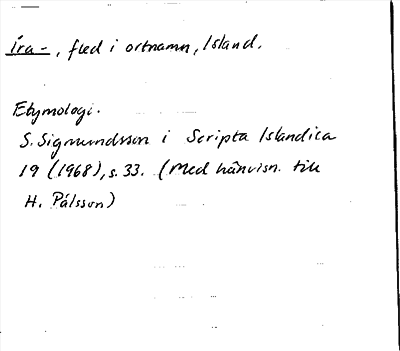 Íra-, fled i ortnamn, Island.
Etymologi.
S. Sigmundsson i Scripta Islandica
19 (1968), s. 33. (Med hänvisn. till
H. Pálsson)